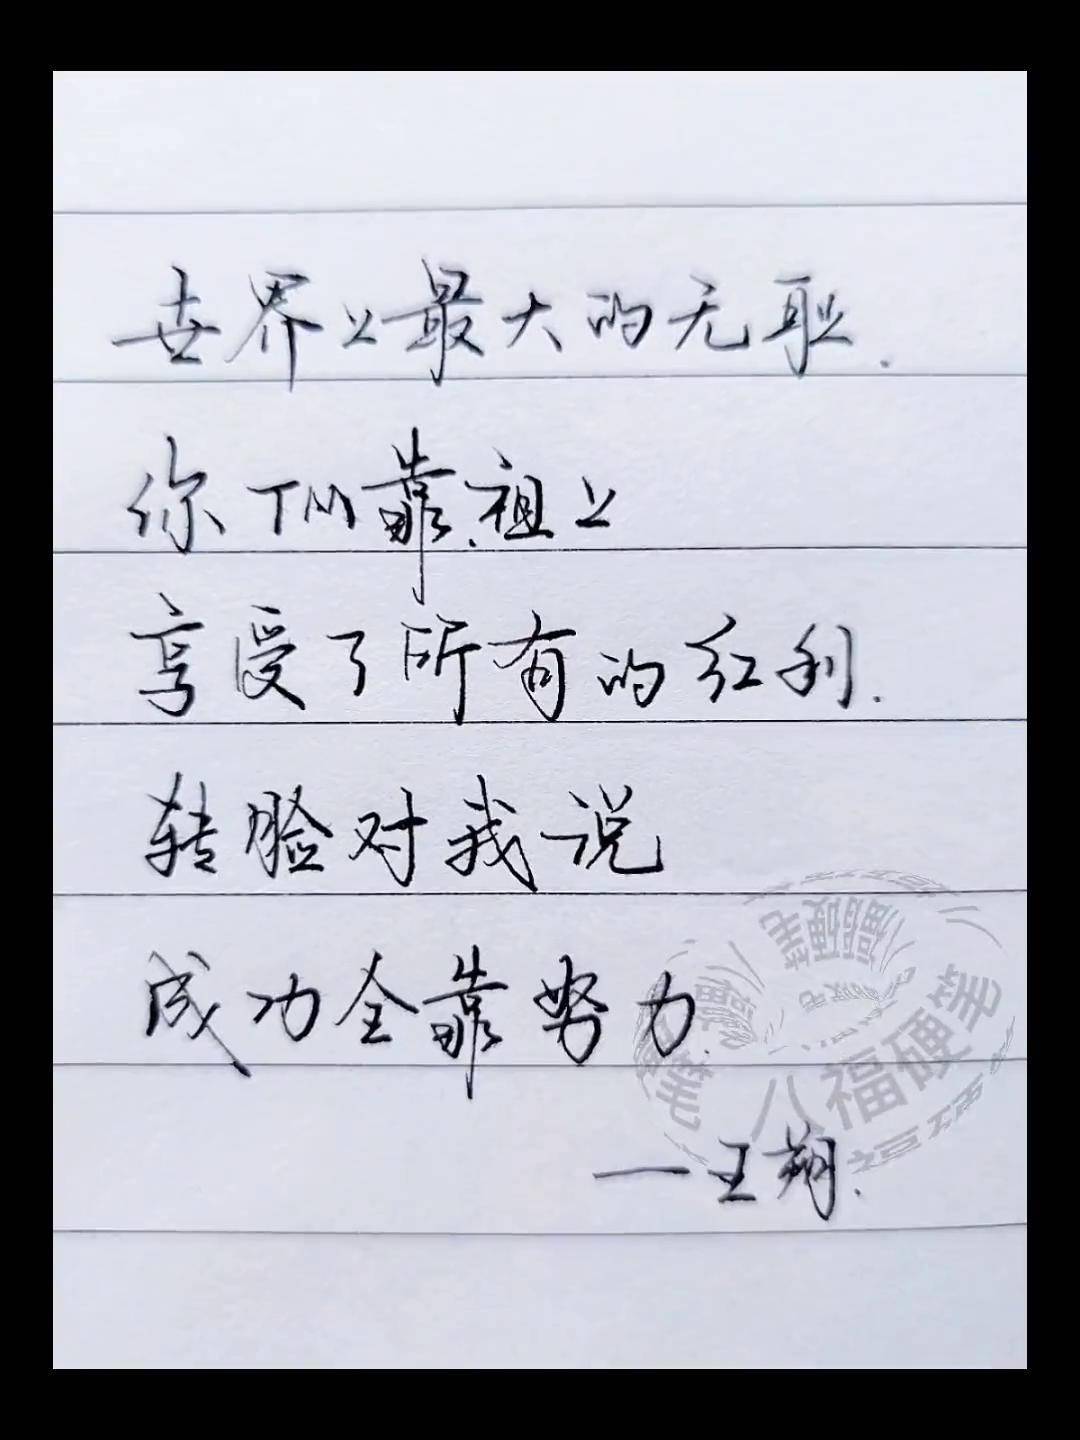 世界上最大的无耻.
你TM靠祖上
享受了所有的红利.
转脸对我说
成功全靠努力.
——王朔.
八福硬笔